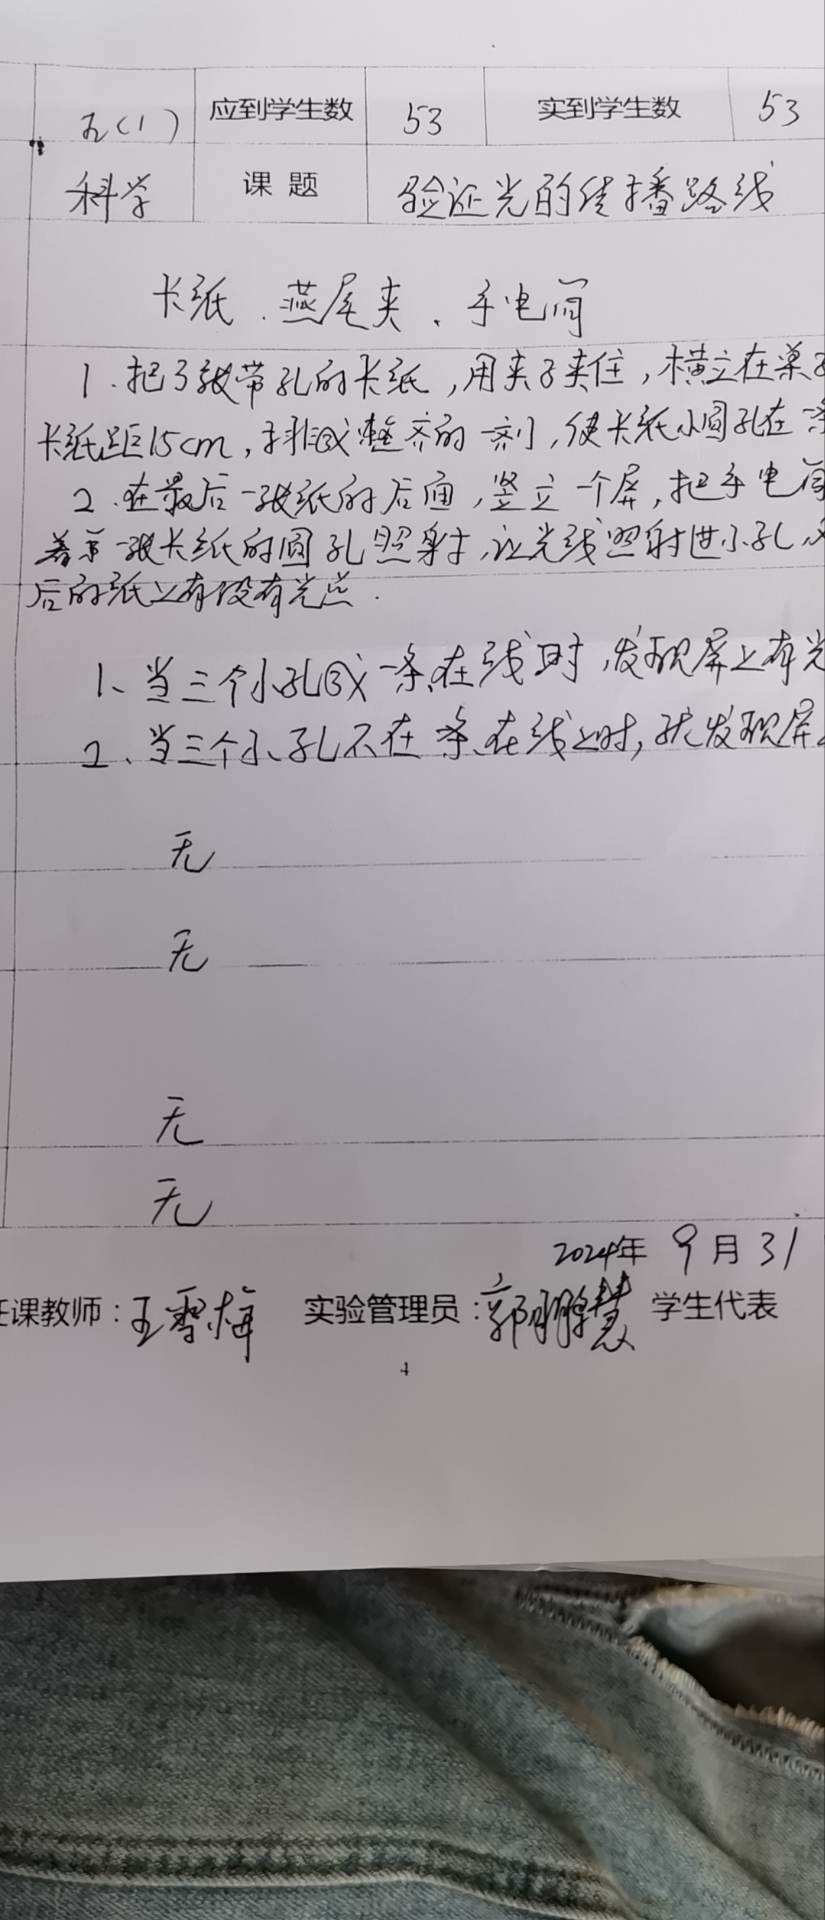 五(1) 应到学生数 53 实到学生数 53
科学 课题 验证光的传播路线
卡纸、燕尾夹、手电筒
1、把3张带孔的卡纸,用夹子夹住,横立在桌
卡纸距15cm,排成整齐的一列,使卡纸小圆孔在
2、在最后一张纸的后面,竖立一个屏,把手电筒
着第一张卡纸的圆孔照射,让光线照射进小孔,
后的纸上有没有光点.
1、当三个小孔成一条在线时,发现屏上有光
2、当三个小孔不在一条在线上时,就发现屏
无
无
无
无
2024年 9月31
任课教师:王雪梅 实验管理员:郭鹏慧 学生代表
4